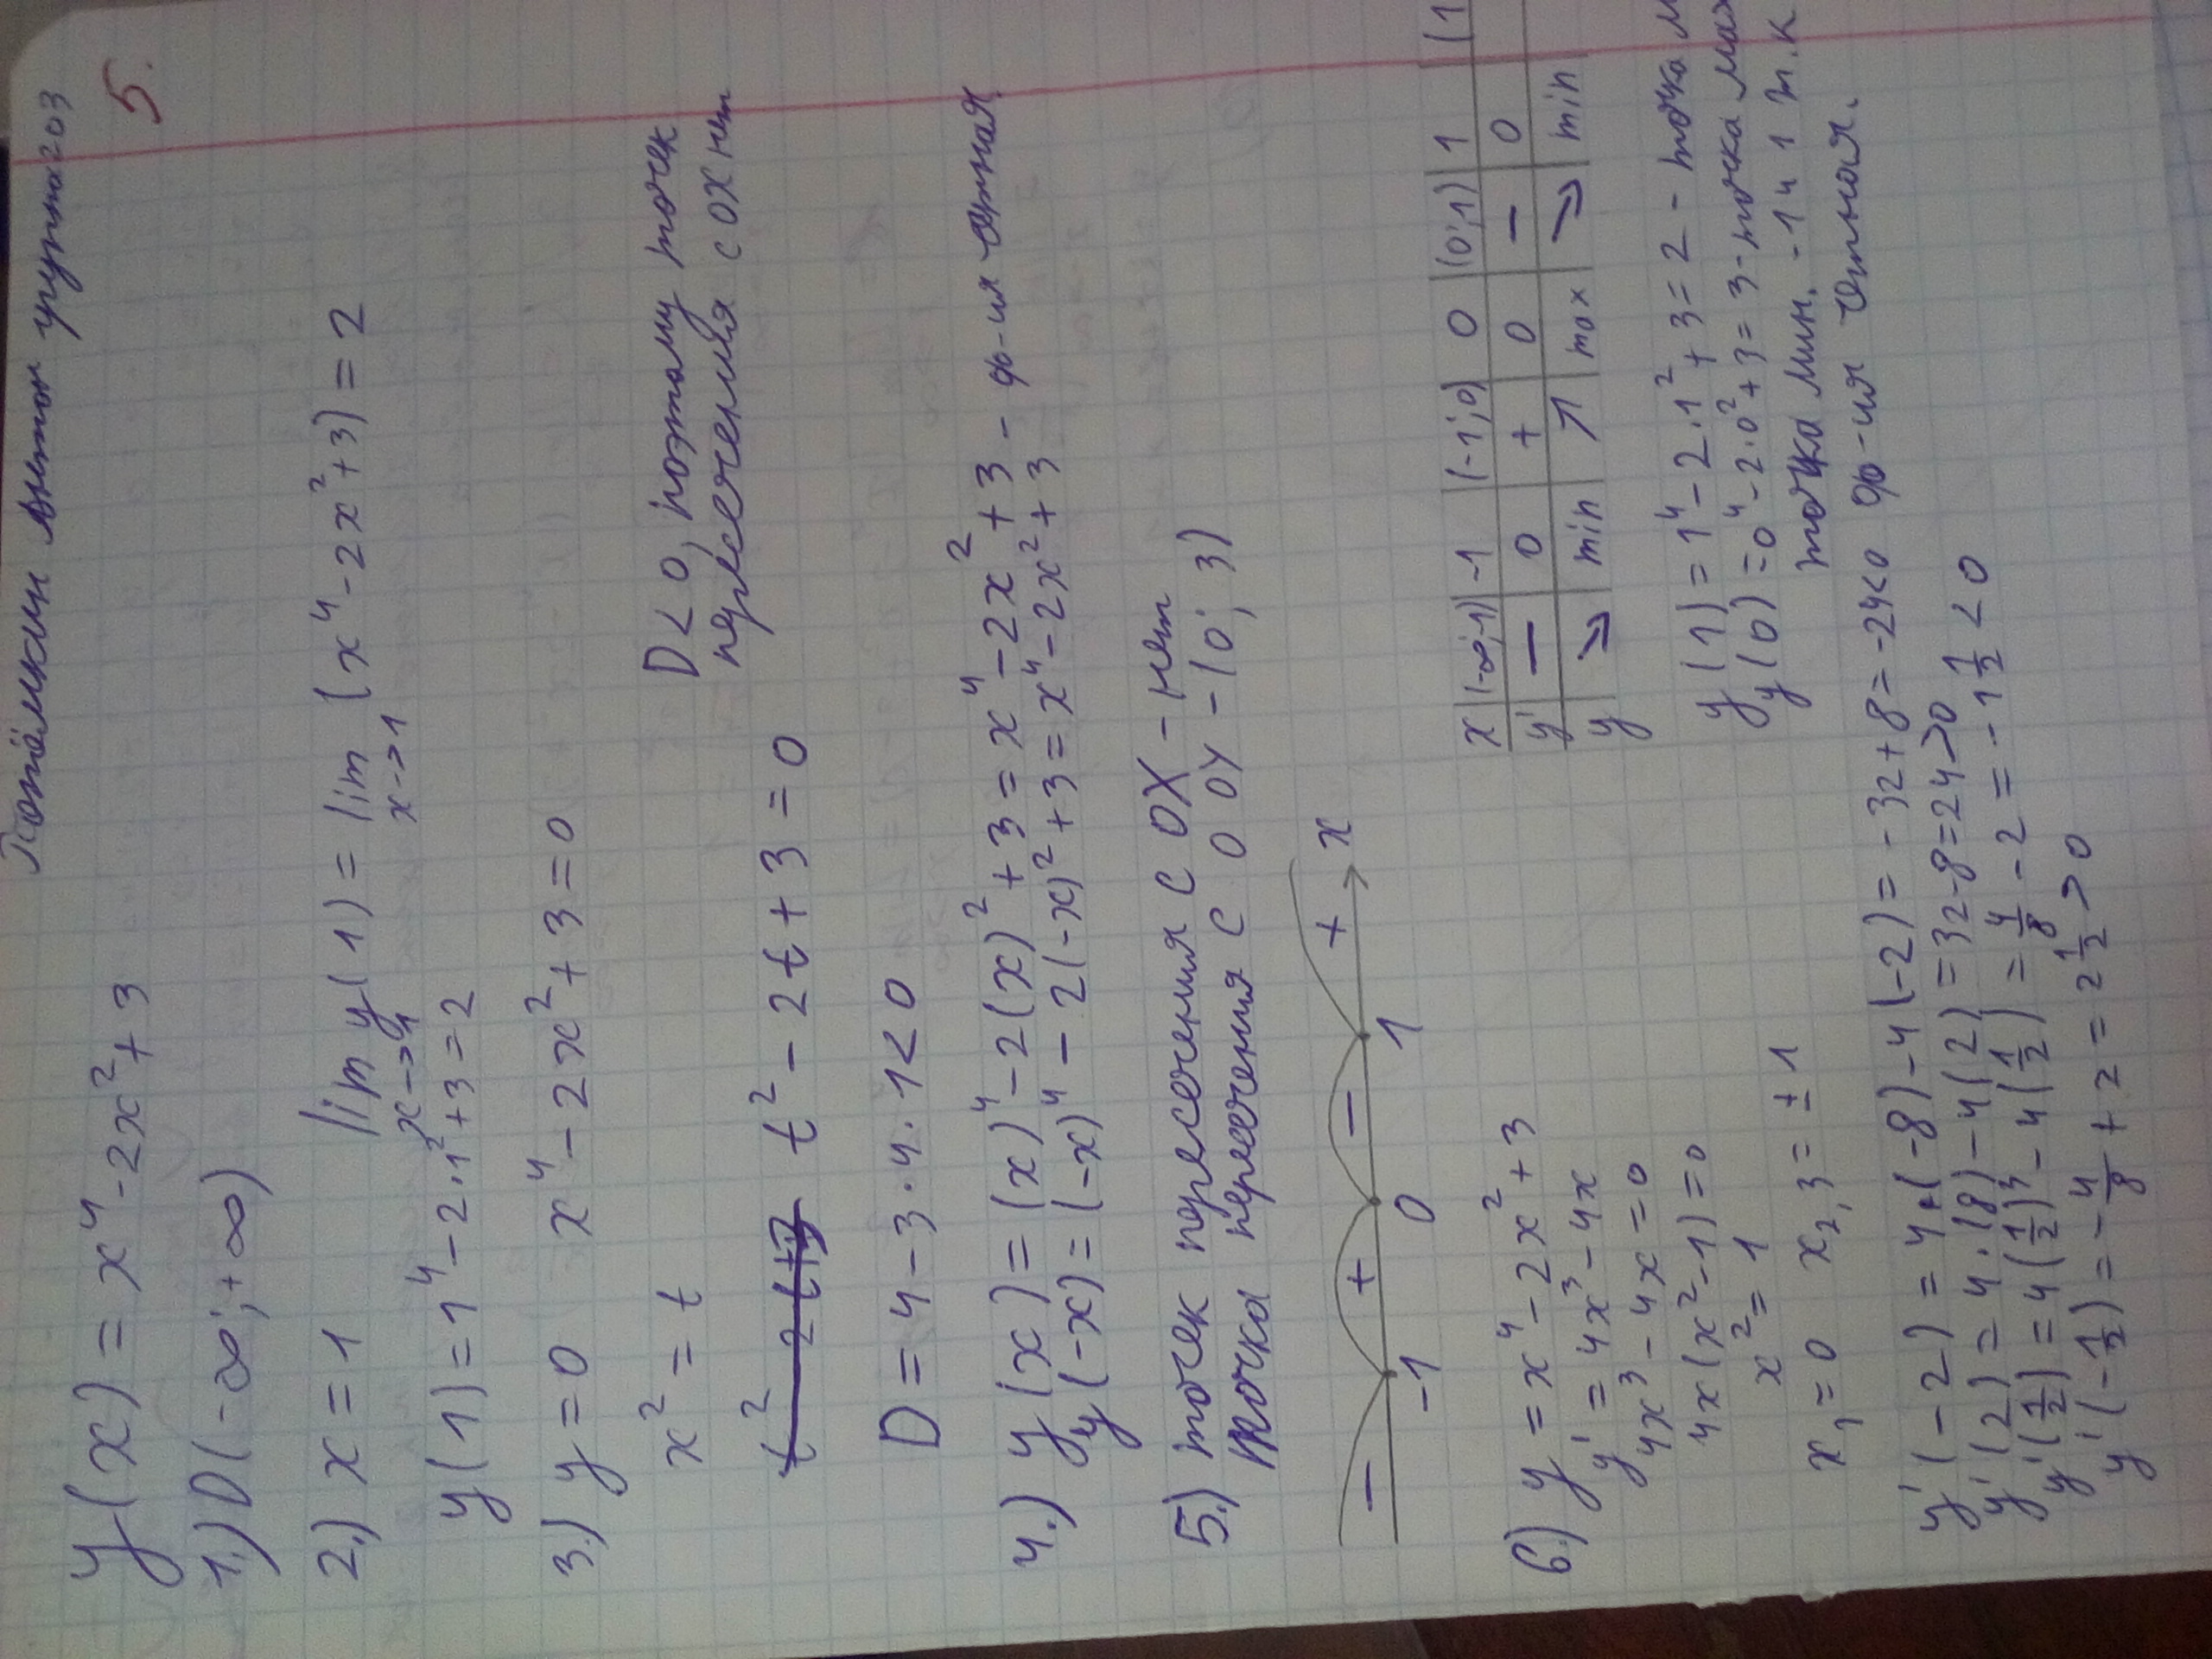 Потёмкин Антон группа 203
5.
y(x) = x⁴ - 2x² + 3
1.) D(-∞; +∞)
2.) x = 1 lim y(1) = lim (x⁴ - 2x² + 3) = 2
x->1 x->1
y(1) = 1⁴ - 2·1² + 3 = 2
3.) y = 0 x⁴ - 2x² + 3 = 0
x² = t
t² - 2t + 3 = 0
D < 0, поэтому точек
пересечения с OX нет
D = 4 - 3·4·1 < 0
4.) y(x) = (x)⁴ - 2(x)² + 3 = x⁴ - 2x² + 3 - ф-ия чётная
y(-x) = (-x)⁴ - 2(-x)² + 3 = x⁴ - 2x² + 3
5.) точек пересечения с OX - нет
точка пересечения с OY - (0; 3)
- + - + x
-1 0 1
6.) y = x⁴ - 2x² + 3
y' = 4x³ - 4x
4x³ - 4x = 0
4x(x² - 1) = 0
x² = 1
x₁ = 0 x₂,₃ = ± 1
x (-∞;-1) -1 (-1;0) 0 (0;1) 1 (1
y' - 0 + 0 - 0
y ↘ min ↗ max ↘ min
y(1) = 1⁴ - 2·1² + 3 = 2 - точка м
y(0) = 0⁴ - 2·0² + 3 = 3 - точка мах
точка мин. -1 и 1 т.к
ф-ия чётная.
y'(-2) = 4·(-8) - 4(-2) = -32 + 8 = -24<0
y'(2) = 4·(8) - 4(2) = 32 - 8 = 24>0
y'(1/2) = 4(1/2)³ - 4(1/2) = 4/8 - 2 = -1 1/2 < 0
y'(-1/2) = -4/8 + 2 = 2 1/2 > 0